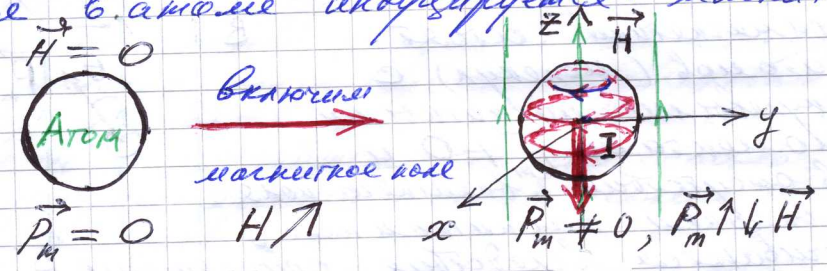 в атоме индуцируется
H⃗ = 0
Атом
P⃗ₘ = 0
включим
магнитное поле
H↗
z H⃗
y
I
x
P⃗ₘ ≠ 0, P⃗ₘ↑↓H⃗